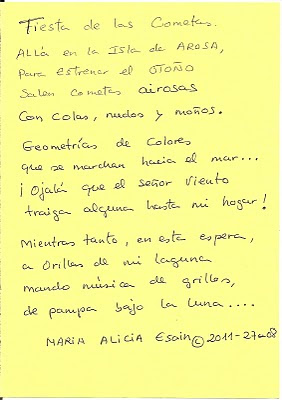 Fiesta de las Cometas.
Allá en la Isla de AROSA,
para estrenar el OTOÑO
Salen cometas airosas
Con colas, nudos y moños.
Geometrías de colores
que se marchan hacia el mar...
¡Ojalá que el señor Viento
traiga alguna hasta mi hogar!
Mientras tanto, en esta espera,
a orillas de mi laguna
mando música de grillos,
de pampa bajo la luna....
MARIA ALICIA Esain © 2011-27-08